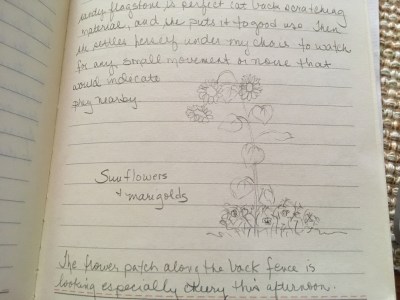 sandy flagstone is perfect cat back scratching
material, and she puts it to good use. Then
she settles herself under my chair to watch
for any small movement or noise that
would indicate
prey nearby
Sunflowers
+ marigolds
The flower patch along the back fence is
looking especially cheery this afternoon.